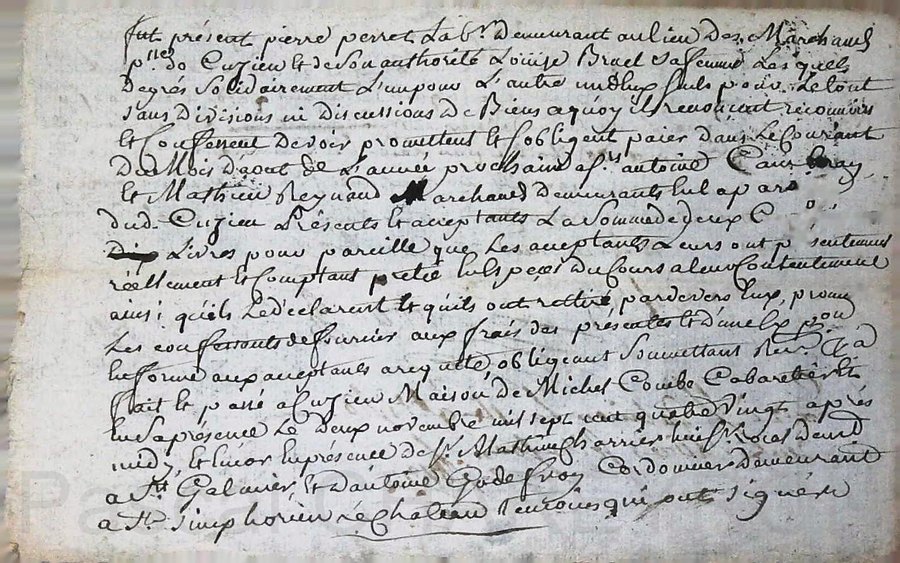 fut présent pierre perret Lab.r demeurant au lieu des Marchands
p.sse do Cuzieu et de Son authorité Louise Bruel Safemme Lesquels
Degrés Solidairement L'un pour L'autre un deux seuls pour Le tout
Sans divisions ni discussions de Biens aquoy ils renoncent reconnoiss
et Confessent devoir promettent et S'obligent paier dans Le Courant
du Mois d'aout de L'année prochaine a S.rs antoine
et Mathieu Reynaud Marchands demeurants
dud. Cuzieu Présents et aceptants La Somme de deux C
Dix Livres pour pareille que Les aceptants Leurs ont présentement
réellement et Comptant pretée en Espèces du Cours a leur Contentement
ainsi qu'ils Le déclarent et qu'ils ont retiré pardevers Eux, prom
Les confessants de fournir aux frais des présentes et d'une Exp.on
En forme aux aceptants arequette, obligeant Soumettant Ren.t &a
fait et passé a Cuzieu Maison de Michel Combe Cabaretier Et
En Saprésence Le deux novembre mil sept cent quatre vingt après
midy, et Encor En présence de S.r Mathieu Charrier huiss. Royal demt
a St Galmier, Et d'antoine Godefroy Cordonnier demeurant
a St. Simphorien Le Chateau temoins qui ont Signé et